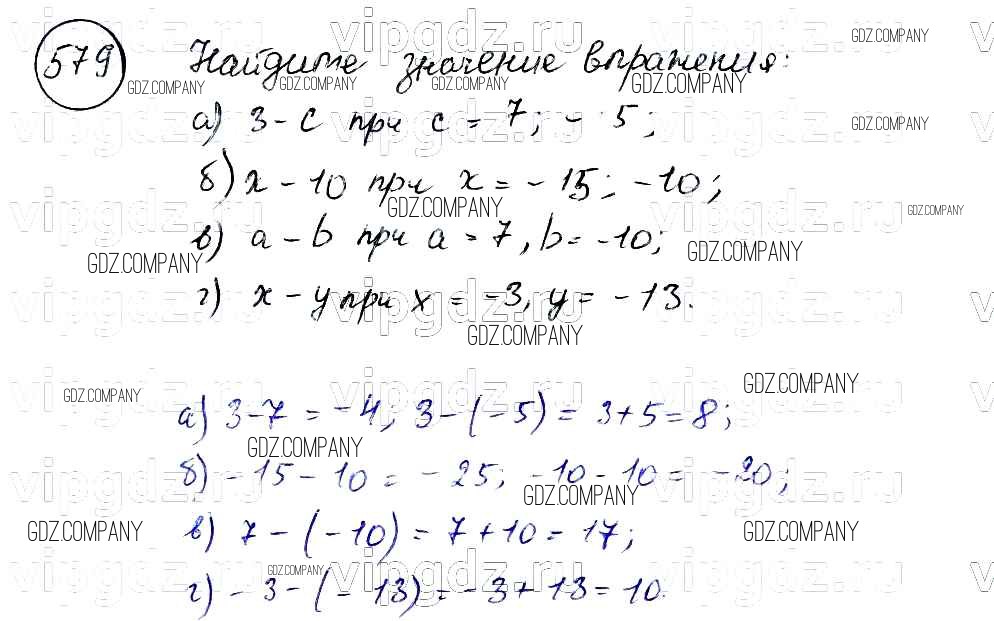 579 Найдите значение выражения:
а) 3 - c при c = 7; -5;
б) x - 10 при x = -15; -10;
в) a - b при a = 7, b = -10;
г) x - y при x = -3, y = -13.
а) 3-7 = -4; 3-(-5) = 3+5 = 8;
б) -15-10 = -25; -10-10 = -20;
в) 7-(-10) = 7+10 = 17;
г) -3-(-13) = -3+13 = 10.
vipgdz.ru
GDZ.COMPANY